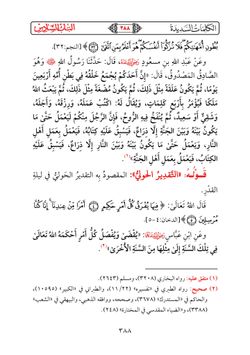 الكلمات السديدة
٣٨٨
بُطُونِ أُمَّهَاتِكُمْ فَلَا تُزَكُّوا أَنفُسَكُمْ هُوَ أَعْلَمُ بِمَنِ اتَّقَىٰ [النجم: ٣٢].
وَعَنْ عَبْدِ اللهِ بنِ مَسْعُودٍ رضي الله عنه، قَالَ: حَدَّثَنَا رَسُولُ اللهِ ﷺ وَهُوَ
الصَّادِقُ المَصْدُوقُ، قَالَ: «إِنَّ أَحَدَكُمْ يُجْمَعُ خَلْقُهُ فِي بَطْنِ أُمِّهِ أَرْبَعِينَ
يَوْمًا، ثُمَّ يَكُونُ عَلَقَةً مِثْلَ ذَلِكَ، ثُمَّ يَكُونُ مُضْغَةً مِثْلَ ذَلِكَ، ثُمَّ يَبْعَثُ اللهُ
مَلَكًا فَيُؤْمَرُ بِأَرْبَعِ كَلِمَاتٍ، وَيُقَالُ لَهُ: اكْتُبْ عَمَلَهُ، وَرِزْقَهُ، وَأَجَلَهُ،
وَشَقِيٌّ أَو سَعِيدٌ، ثُمَّ يُنْفَخُ فِيهِ الرُّوحُ، فَإِنَّ الرَّجُلَ مِنْكُمْ لَيَعْمَلُ حَتَّى مَا
يَكُونُ بَيْنَهُ وَبَيْنَ الجَنَّةِ إِلَّا ذِرَاعٌ، فَيَسْبِقُ عَلَيْهِ كِتَابُهُ، فَيَعْمَلُ بِعَمَلِ أَهْلِ
النَّارِ، وَيَعْمَلُ حَتَّى مَا يَكُونُ بَيْنَهُ وَبَيْنَ النَّارِ إِلَّا ذِرَاعٌ، فَيَسْبِقُ عَلَيْهِ
الكِتَابُ، فَيَعْمَلُ بِعَمَلِ أَهْلِ الجَنَّةِ»(١).
قَوْلُهُ: «التَّقْدِيرُ الحَوْلِيُّ»: المقصودُ بِهِ التقديرُ الحَوْلِيُّ في ليلةِ
القَدْرِ.
قَالَ اللهُ تَعَالَى: ﴿فِيهَا يُفْرَقُ كُلُّ أَمْرٍ حَكِيمٍ ۝ أَمْرًا مِّنْ عِندِنَا إِنَّا كُنَّا
مُرْسِلِينَ﴾ [الدخان: ٤-٥].
وَعَنِ ابنِ عَبَّاسٍ رضي الله عنهما، قَالَ: «يُقْضَى وَيُفْصَلُ كُلُّ أَمْرٍ أَحْكَمَهُ اللهُ تَعَالَى
فِي تِلْكَ السَّنَةِ إِلَى مِثْلِهَا مِنَ السَّنَةِ الأُخْرَى»(٢).
(١) متفق عليه: رواه البخاري (٣٢٠٨)، ومسلم (٢٦٤٣).
(٢) صحيح: رواه الطبري في «تفسيره» (١١/٢٢)، والطبراني في «الكبير» (١٠٥٩٥)،
والحاكم في «المستدرك» (٣٦٧٨)، وصححه، ووافقه الذهبي، والبيهقي في «الشعب»
(٣٣٨٨)، و«الضياء المقدسي في المختارة» (٢٤٨).
٣٨٨